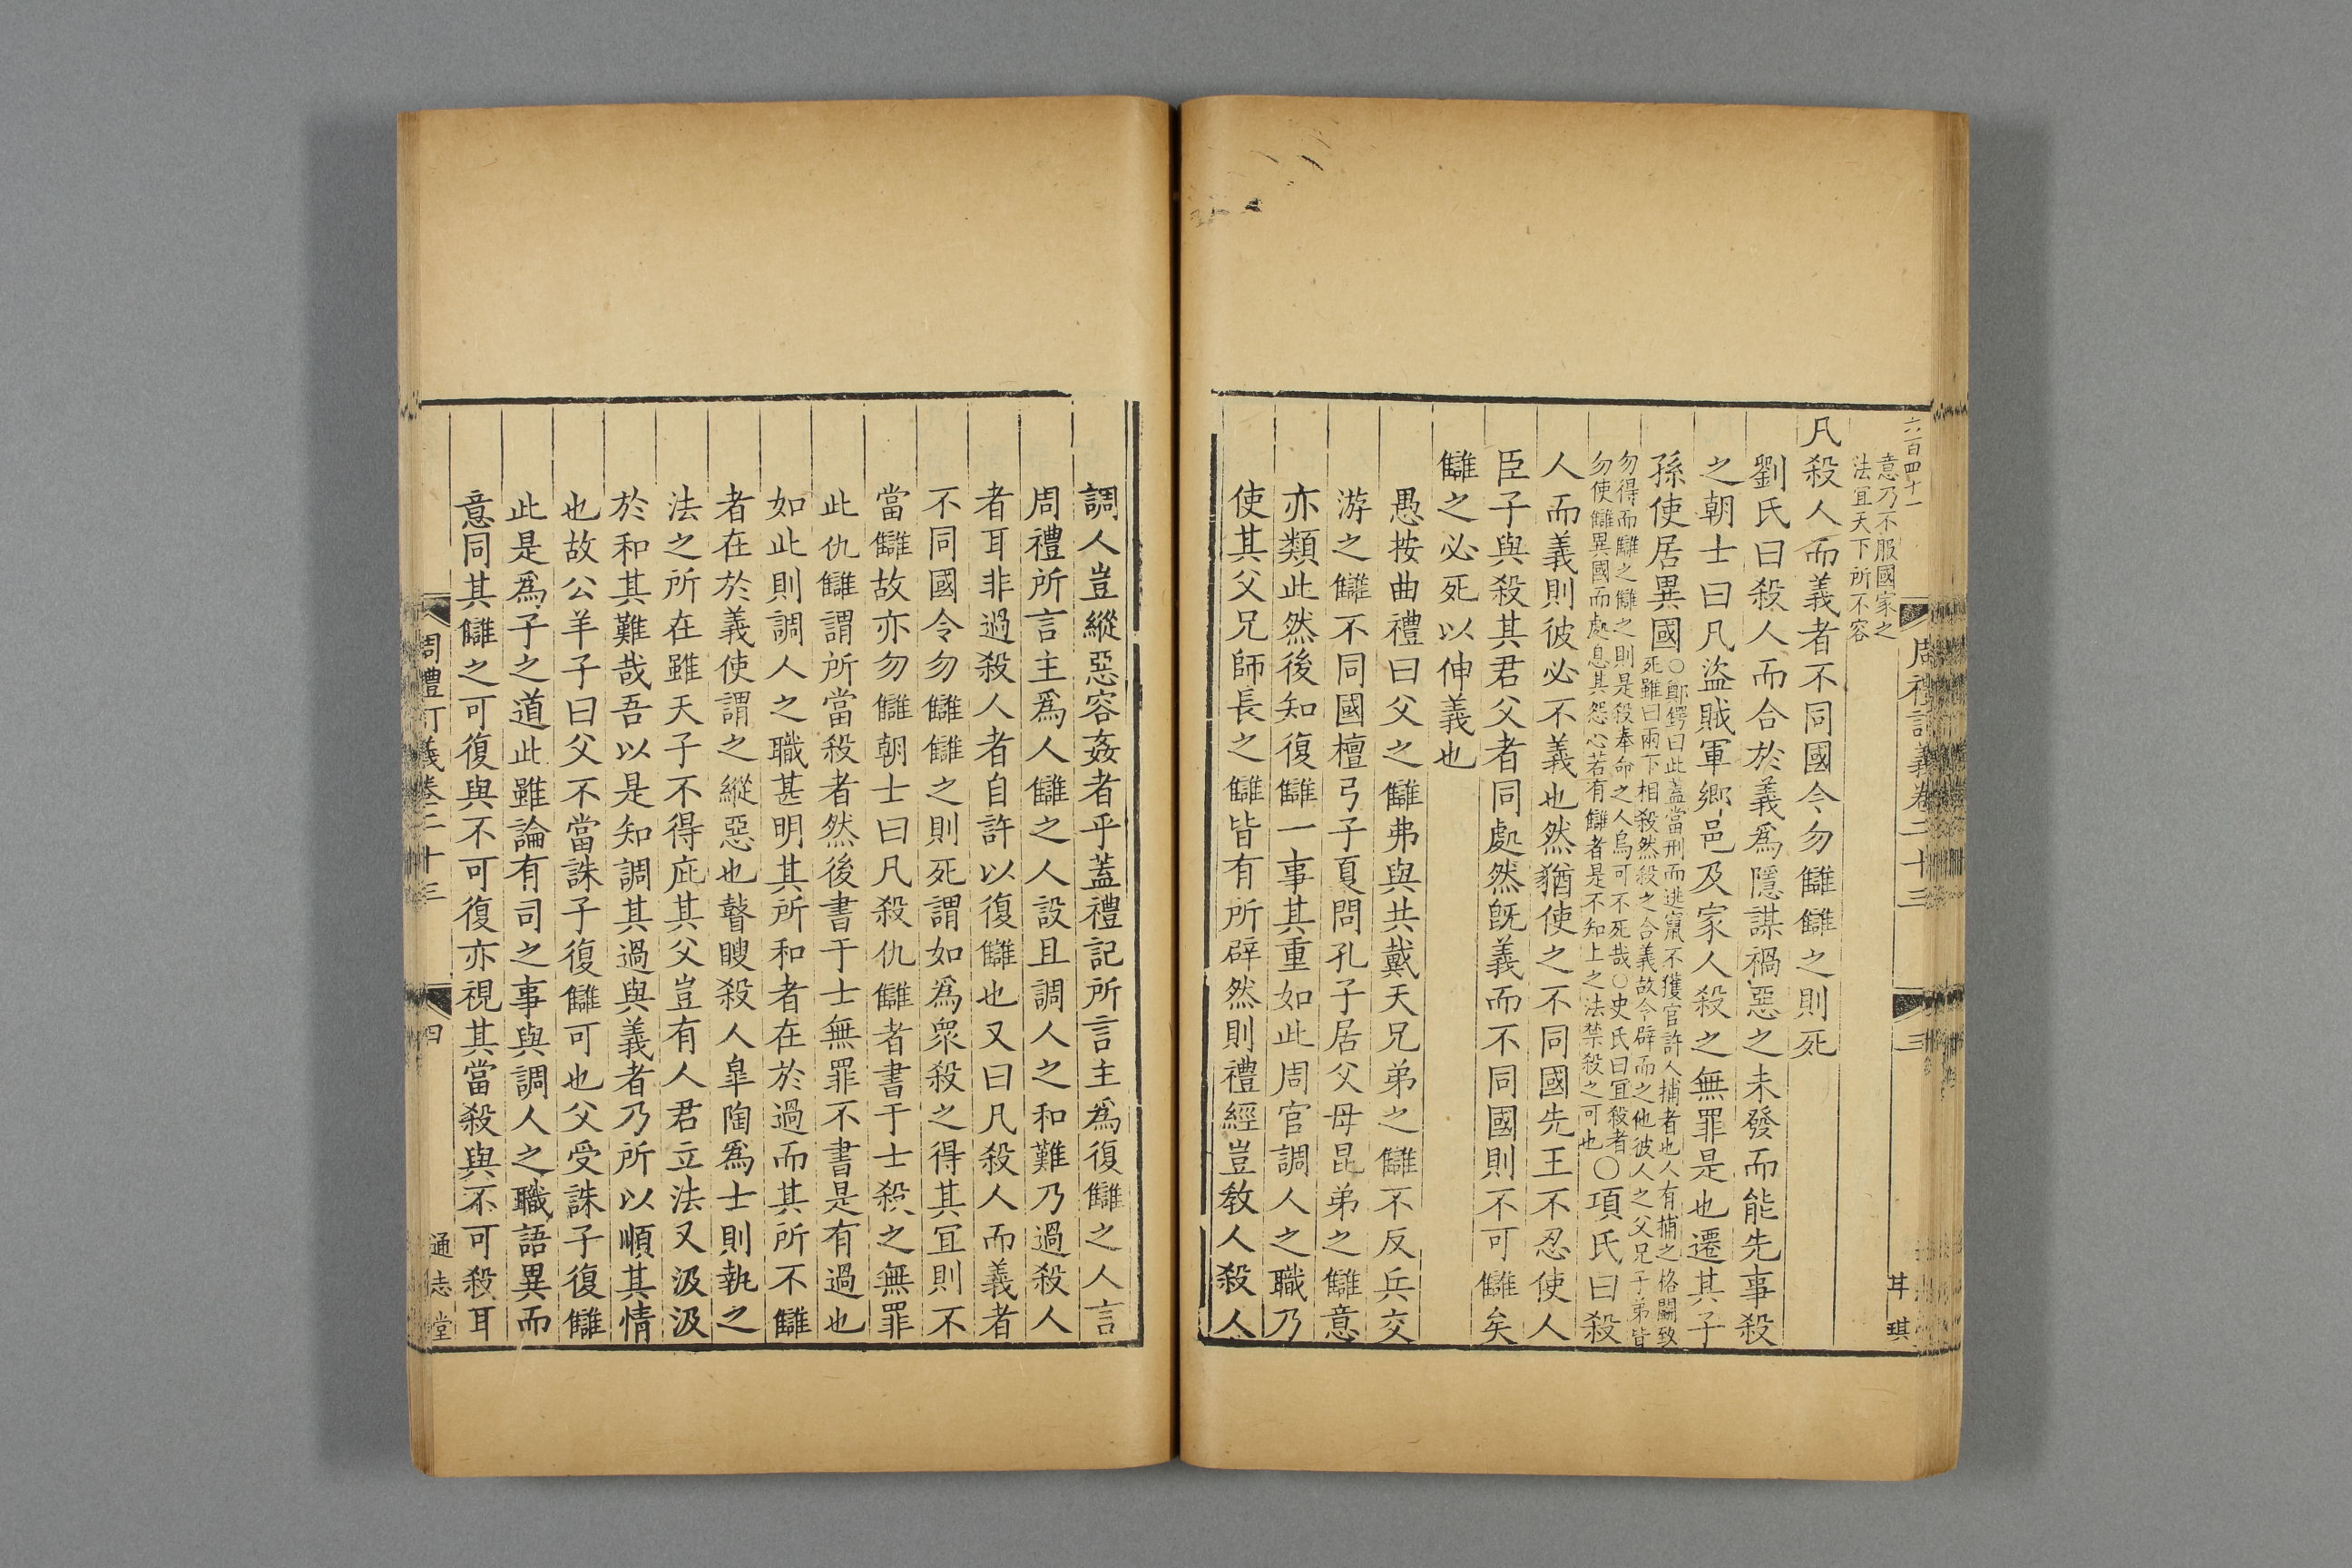 六百四十一
周禮訂義卷二十三
三
耳
琪
意乃不服國家之
法宜天下所不容
凡殺人而義者不同國令勿讎讎之則死
劉氏曰殺人而合於義爲隱謀禍惡之未發而能先事殺
之朝士曰凡盜賊軍鄉邑及家人殺之無罪是也遷其子
孫使居異國
○鄭鍔曰此蓋當刑而逃竄不獲官許人捕者也人有捕之格鬭致
死雖曰兩下相殺然殺之合義故令辟而之他彼人之父兄子弟皆
勿得而讎之讎之則是殺奉命之人烏可不死哉○史氏曰宜殺者
勿使讎異國而處息其怨心若有讎者是不知上之法禁殺之可也
○項氏曰殺
人而義則彼必不義也然猶使之不同國先王不忍使人
臣子與殺其君父者同處然旣義而不同國則不可讎矣
讎之必死以伸義也
愚按曲禮曰父之讎弗與共戴天兄弟之讎不反兵交
游之讎不同國檀弓子夏問孔子居父母昆弟之讎意
亦類此然後知復讎一事其重如此周官調人之職乃
使其父兄師長之讎皆有所辟然則禮經豈敎人殺人
調人豈縱惡容姦者乎蓋禮記所言主爲復讎之人言
周禮所言主爲人讎之人設且調人之和難乃過殺人
者耳非過殺人者自許以復讎也又曰凡殺人而義者
不同國令勿讎讎之則死謂如爲衆殺之得其宜則不
當讎故亦勿讎朝士曰凡殺仇讎者書于士殺之無罪
此仇讎謂所當殺者然後書于士無罪不書是有過也
如此則調人之職甚明其所和者在於過而其所不讎
者在於義使謂之縱惡也瞽瞍殺人皐陶爲士則執之
法之所在雖天子不得庇其父豈有人君立法又汲汲
於和其難哉吾以是知調其過與義者乃所以順其情
也故公羊子曰父不當誅子復讎可也父受誅子復讎
此是爲子之道此雖論有司之事與調人之職語異而
意同其讎之可復與不可復亦視其當殺與不可殺耳
周禮訂義卷二十三
四
通志堂